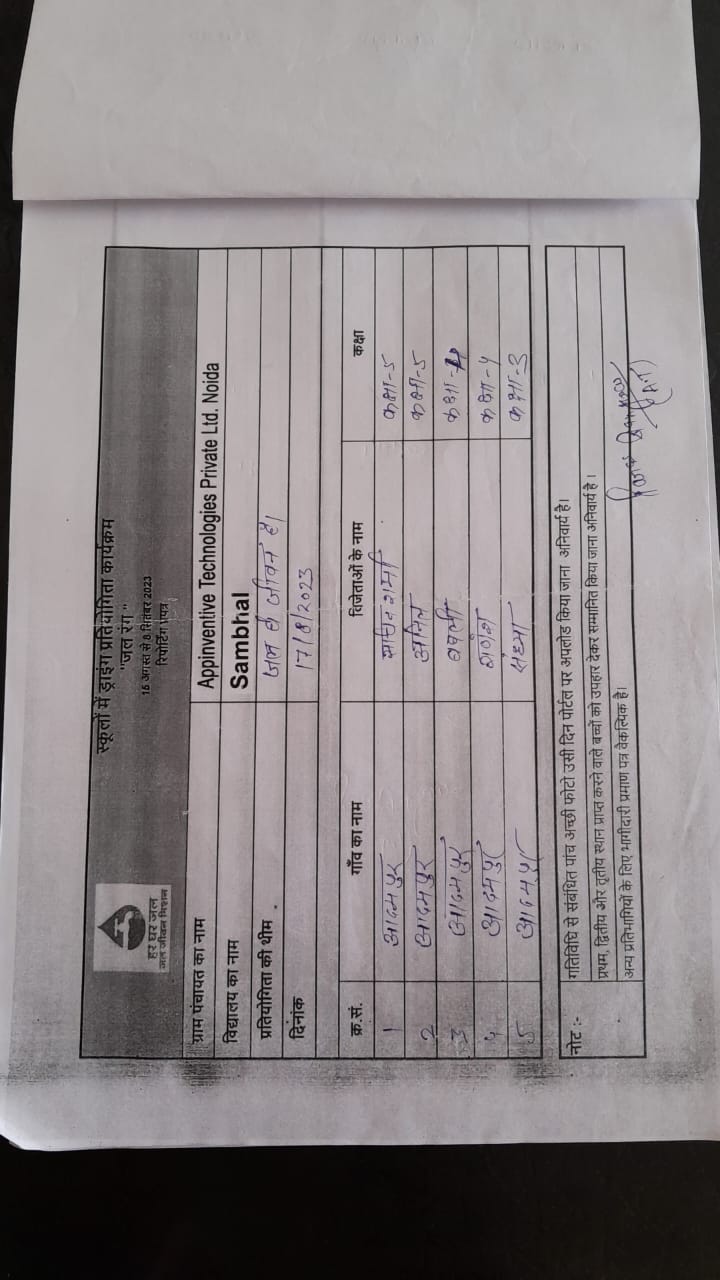 स्कूलों में ड्राइंग प्रतियोगिता कार्यक्रम
"जल रंग"
16 अगस्त से 8 सितंबर 2023
रिपोर्टिंग प्रपत्र
हर घर जल
जल जीवन मिशन
ग्राम पंचायत का नाम Appinventive Technologies Private Ltd. Noida
विद्यालय का नाम Sambhal
प्रतियोगिता की थीम जल ही जीवन है।
दिनांक 17/8/2023
क्र.सं. गाँव का नाम विजेताओं के नाम कक्षा
1 आदमपुर शर्मा कक्षा-5
2 आदमपुर अनित कक्षा-5
3 आदमपुर कक्षा-4
४ आदमपुर गणेश कक्षा-४
5 आदमपुर संध्या कक्षा-3
नोट :- गतिविधि से संबंधित पांच अच्छी फोटो उसी दिन पोर्टल पर अपलोड किया जाना अनिवार्य है।
प्रथम, द्वितीय और तृतीय स्थान प्राप्त करने वाले बच्चों को उपहार देकर सम्मानित किया जाना अनिवार्य है।
अन्य प्रतिभागियों के लिए भागीदारी प्रमाण पत्र वैकल्पिक है।